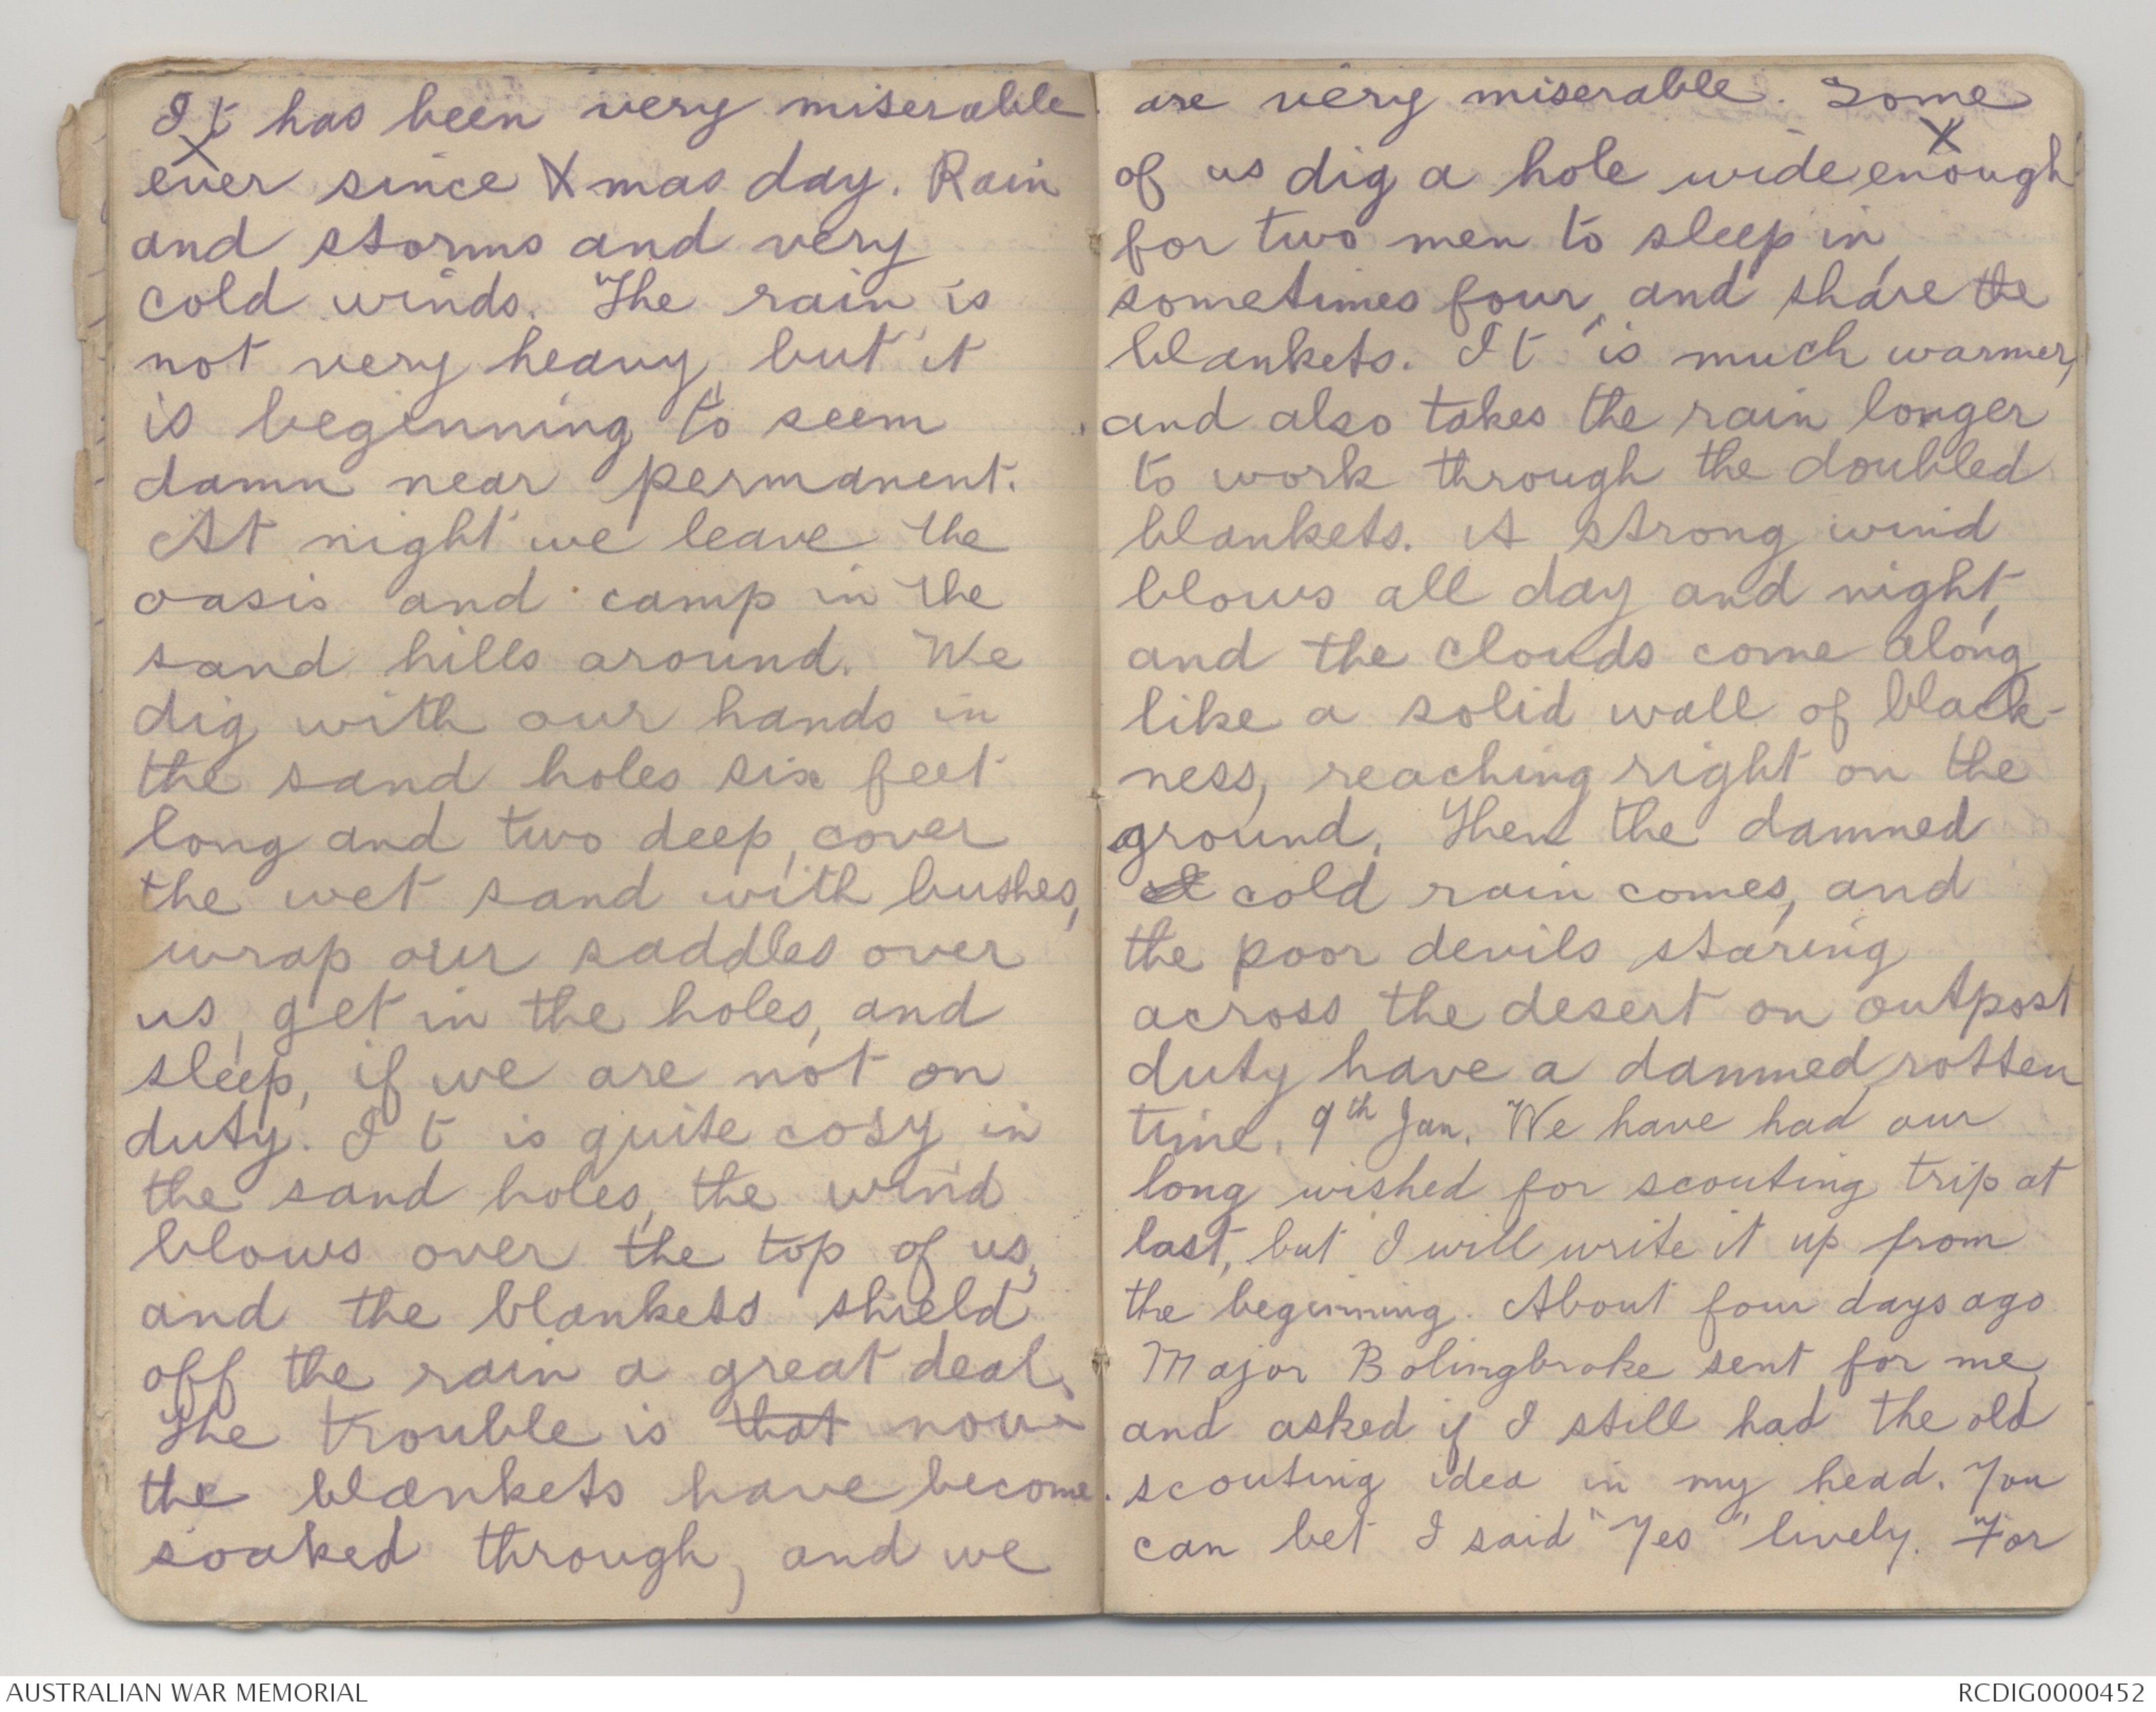 It has been very miserable
X
ever since Xmas day. Rain
and storms and very
cold winds. The rain is
not very heavy, but it
is beginning to seem
damn near permanent.
At night we leave the
oasis and camp in the
sand hills around. We
dig with our hands in
the sand holes six feet
long and two deep, cover
the wet sand with bushes,
wrap our saddles over
us, get in the holes, and
sleep, if we are not on
duty. It is quite cosy in
the sand holes, the wind
blows over the top of us,
and the blankets shield
off the rain a great deal.
The trouble is that now
the blankets have become
soaked through, and we
are very miserable. Some
X
of us dig a hole wide enough
for two men to sleep in,
sometimes four, and share the
blankets. It is much warmer,
and also takes the rain longer
to work through the doubled
blankets. A strong wind
blows all day and night,
and the clouds come along
like a solid wall of black-
ness, reaching right on the
ground. Then the damned
cold rain comes, and
the poor devils staring
across the desert on outpost
duty have a damned rotten
time. 9th Jan. We have had our
long wished for scouting trip at
last, but I will write it up from
the beginning. About four days ago
Major Bolingbroke sent for me,
and asked if I still had the old
scouting idea in my head. You
can bet I said "Yes" lively. "For
AUSTRALIAN WAR MEMORIAL
RCDIG0000452